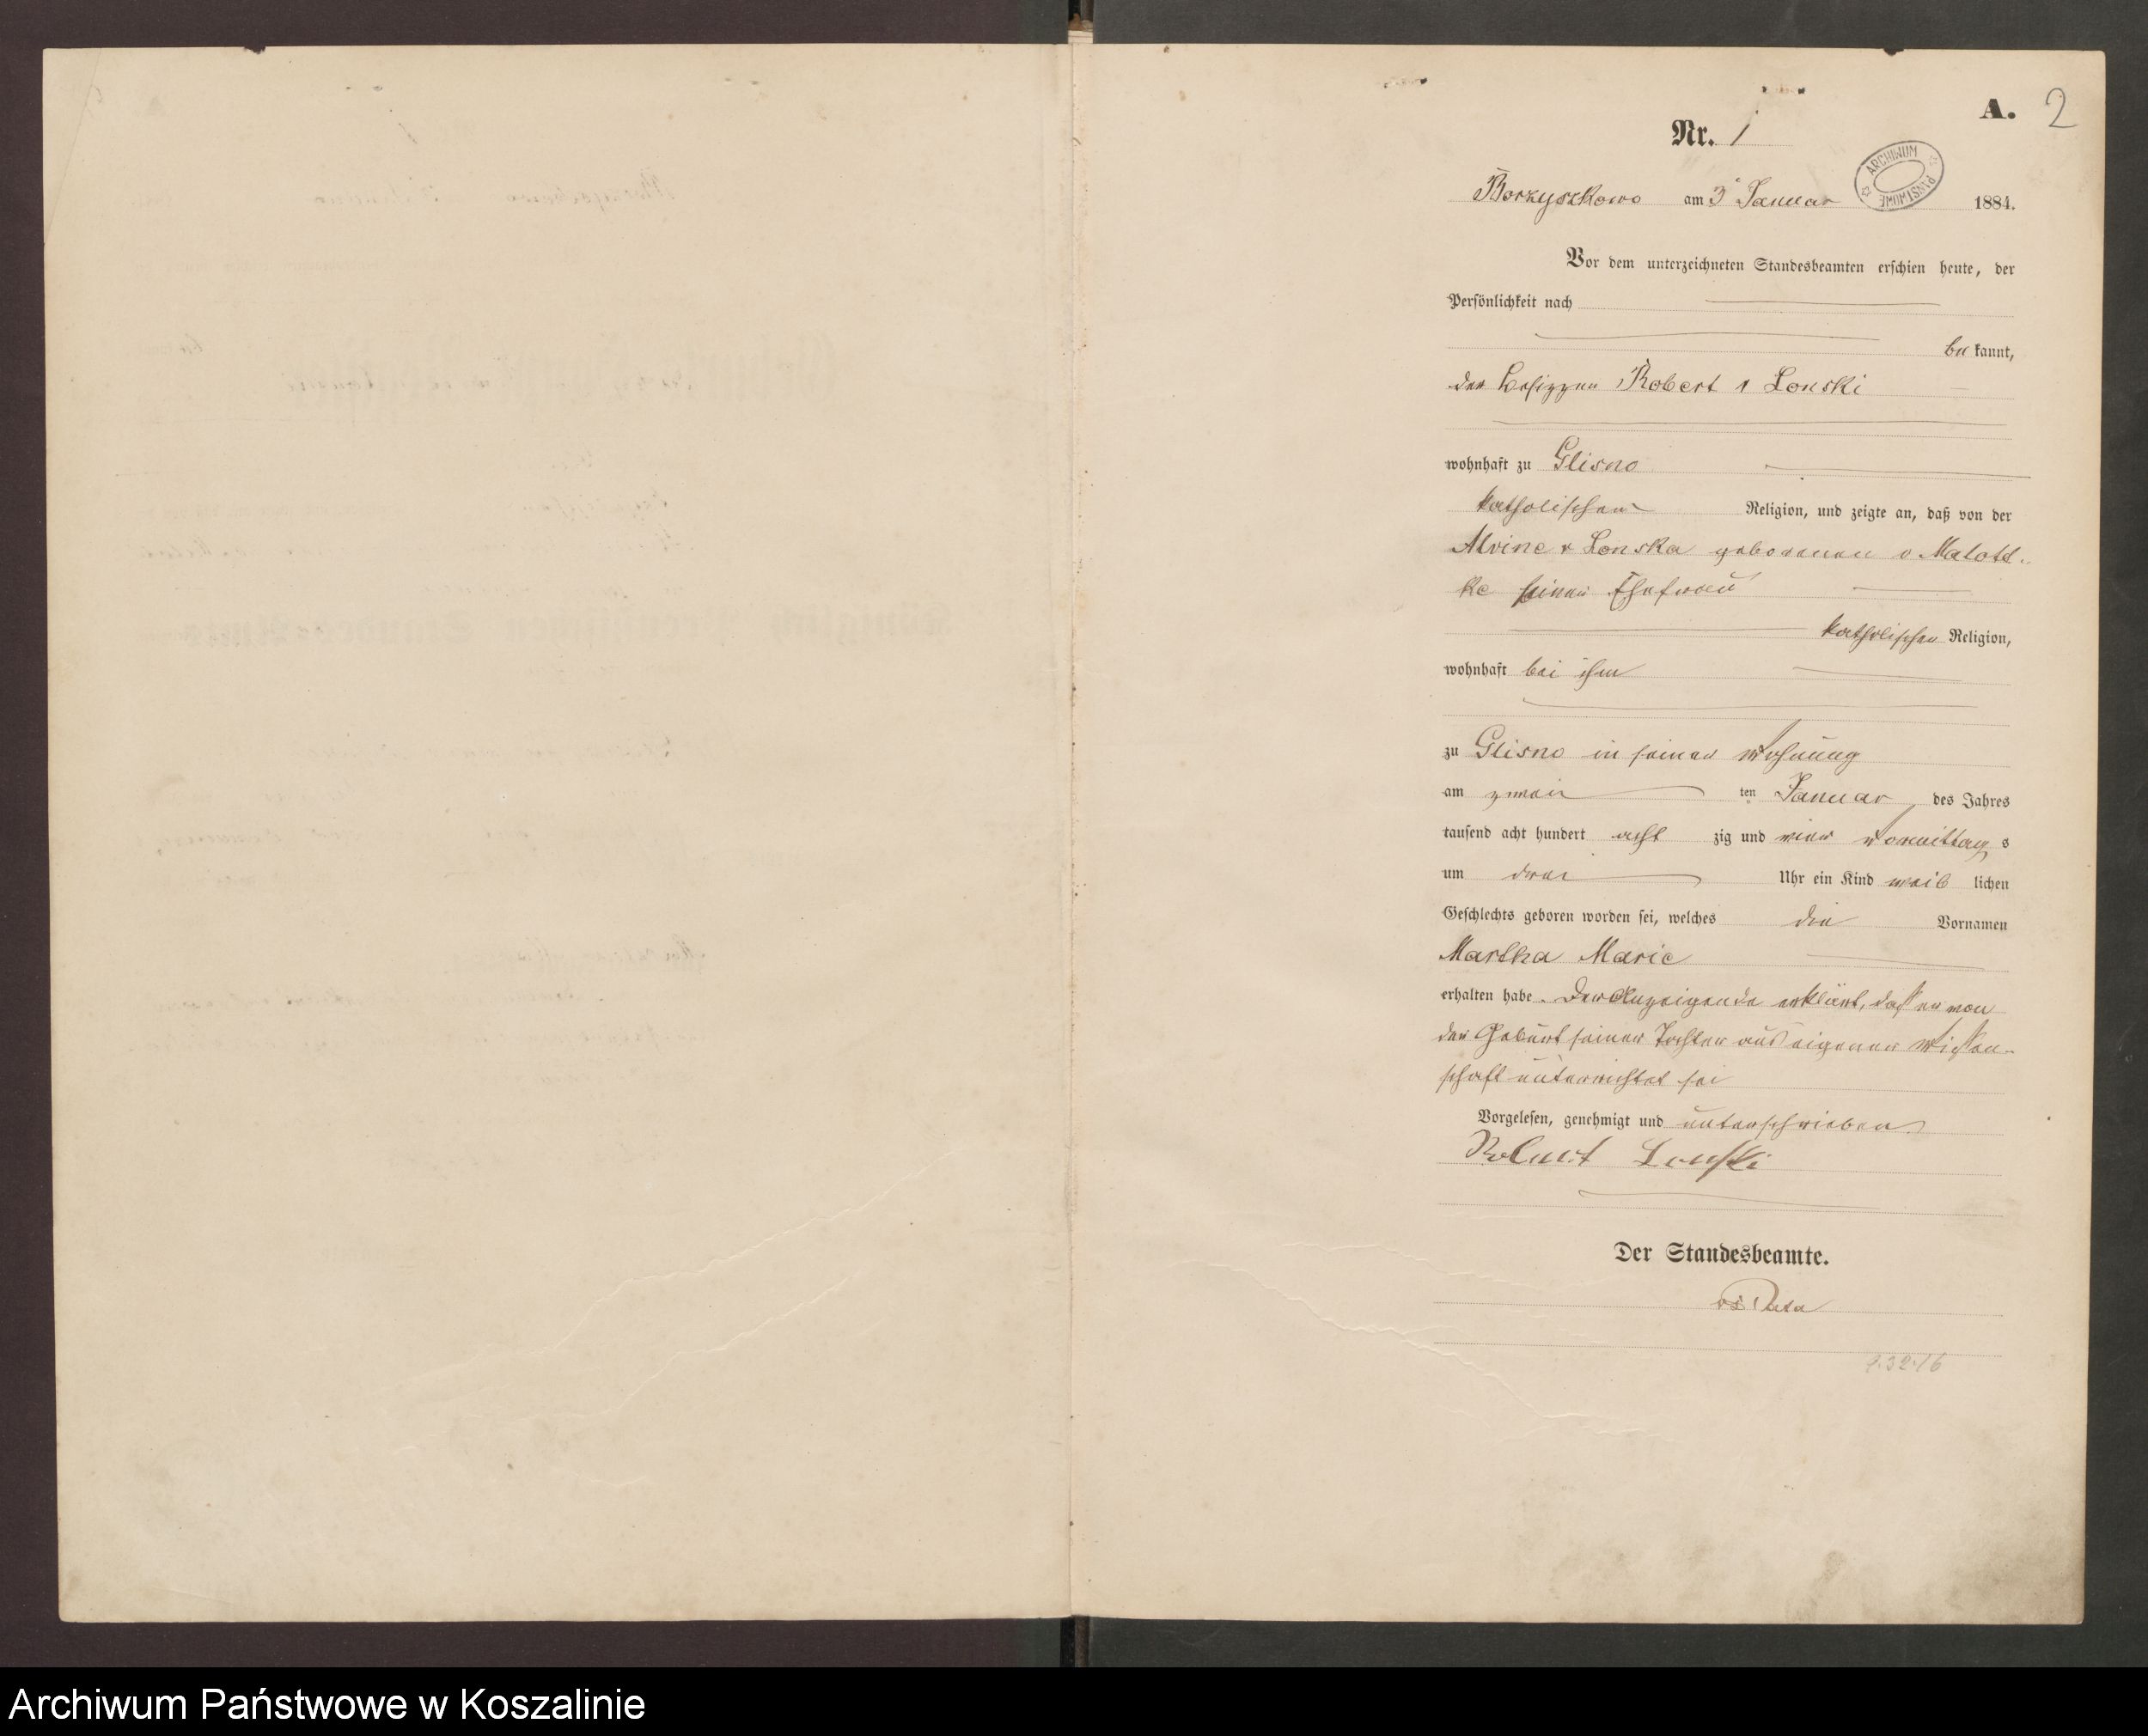 A. 2
Nr. 1
ARCHIWUM PAŃSTWOWE
Borzyszkowo am 3 Januar 1884.
Vor dem unterzeichneten Standesbeamten erschien heute, der
Persönlichkeit nach
be kannt,
der Besitzer Robert v Lonski
wohnhaft zu Glisno
katholischer Religion, und zeigte an, daß von der
Alvine v Lonska geborenen v Malott-
ke seiner Ehefrau
katholischer Religion,
wohnhaft bei ihm
zu Glisno in seiner Wohnung
am zwei ten Januar des Jahres
tausend acht hundert acht zig und vier Vormittag s
um drei Uhr ein Kind weib lichen
Geschlechts geboren worden sei, welches die Vornamen
Martha Marie
erhalten habe. Der Anzeigende erklärt, daß er von
der Geburt seiner Tochter aus eigener Wissen-
schaft unterrichtet sei
Vorgelesen, genehmigt und unterschrieben
Robert Lonski
Der Standesbeamte.
Archiwum Państwowe w Koszalinie